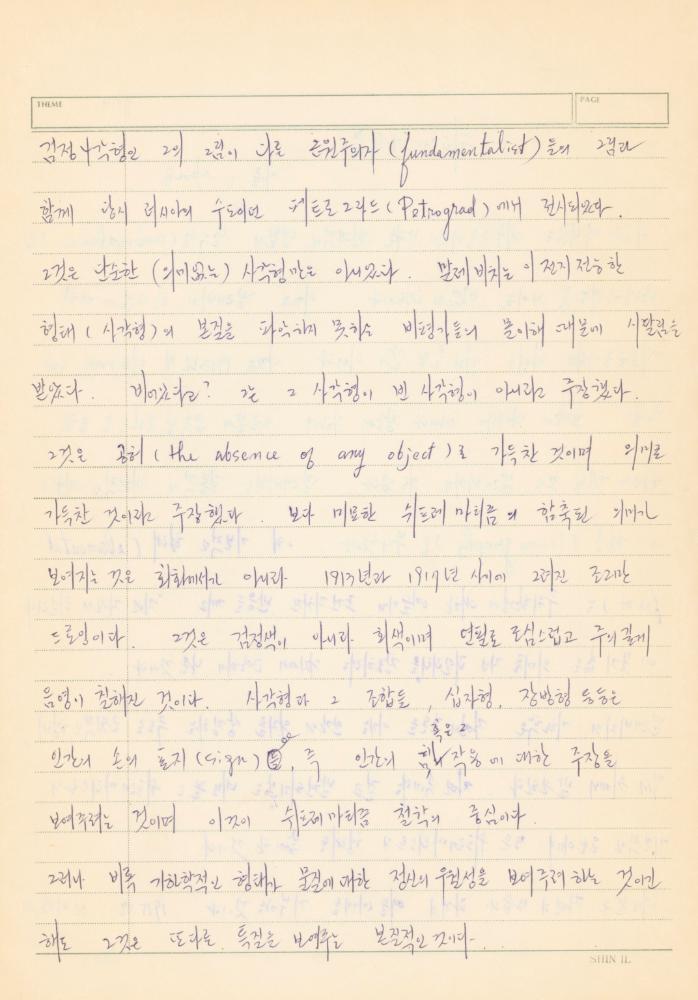 THEME
PAGE
검정 4각형인 그의 그림이 다른 근원주의자 (fundamentalist) 들의 그림과
함께 당시 러시아의 수도이던 페트로그라드 (Petrograd) 에서 전시되었다.
그것은 단순한 (의미없는) 사각형만은 아니었다. 말레비치는 이 전지전능한
형태 ( 사각형 ) 의 본질을 파악하지 못하는 비평가들의 몰이해 때문에 시달림을
받았다. 비어있다고? 그는 그 사각형이 빈 사각형이 아니라고 주장했다.
그것은 공허 ( the absence of any object ) 로 가득찬 것이며 의미로
가득찬 것이라고 주장했다. 보다 미묘한 쉬프레마티즘의 함축된 의미가
보여지는 것은 회화에서가 아니라 1913년과 1917년 사이에 그려진 조그만
드로잉이다. 그것은 검정색이 아니라 회색이며 연필로 조심스럽고 주의깊게
음영이 칠해진 것이다. 사각형과 그 조합들, 십자형, 장방형 등등은
혹은 그
인간의 손의 표지 (sign) 를, 즉 인간의 힘, 작용에 대한 주장을
보여주려는 것이며 이것이 쉬프레마티즘 철학의 중심이다.
그러나 비록 기하학적인 형태가 물질에 대한 정신의 우월성을 보여주려 하는 것이긴
해도 그것은 또다른 특질을 보여주는 본질적인 것이다.
SHIN IL